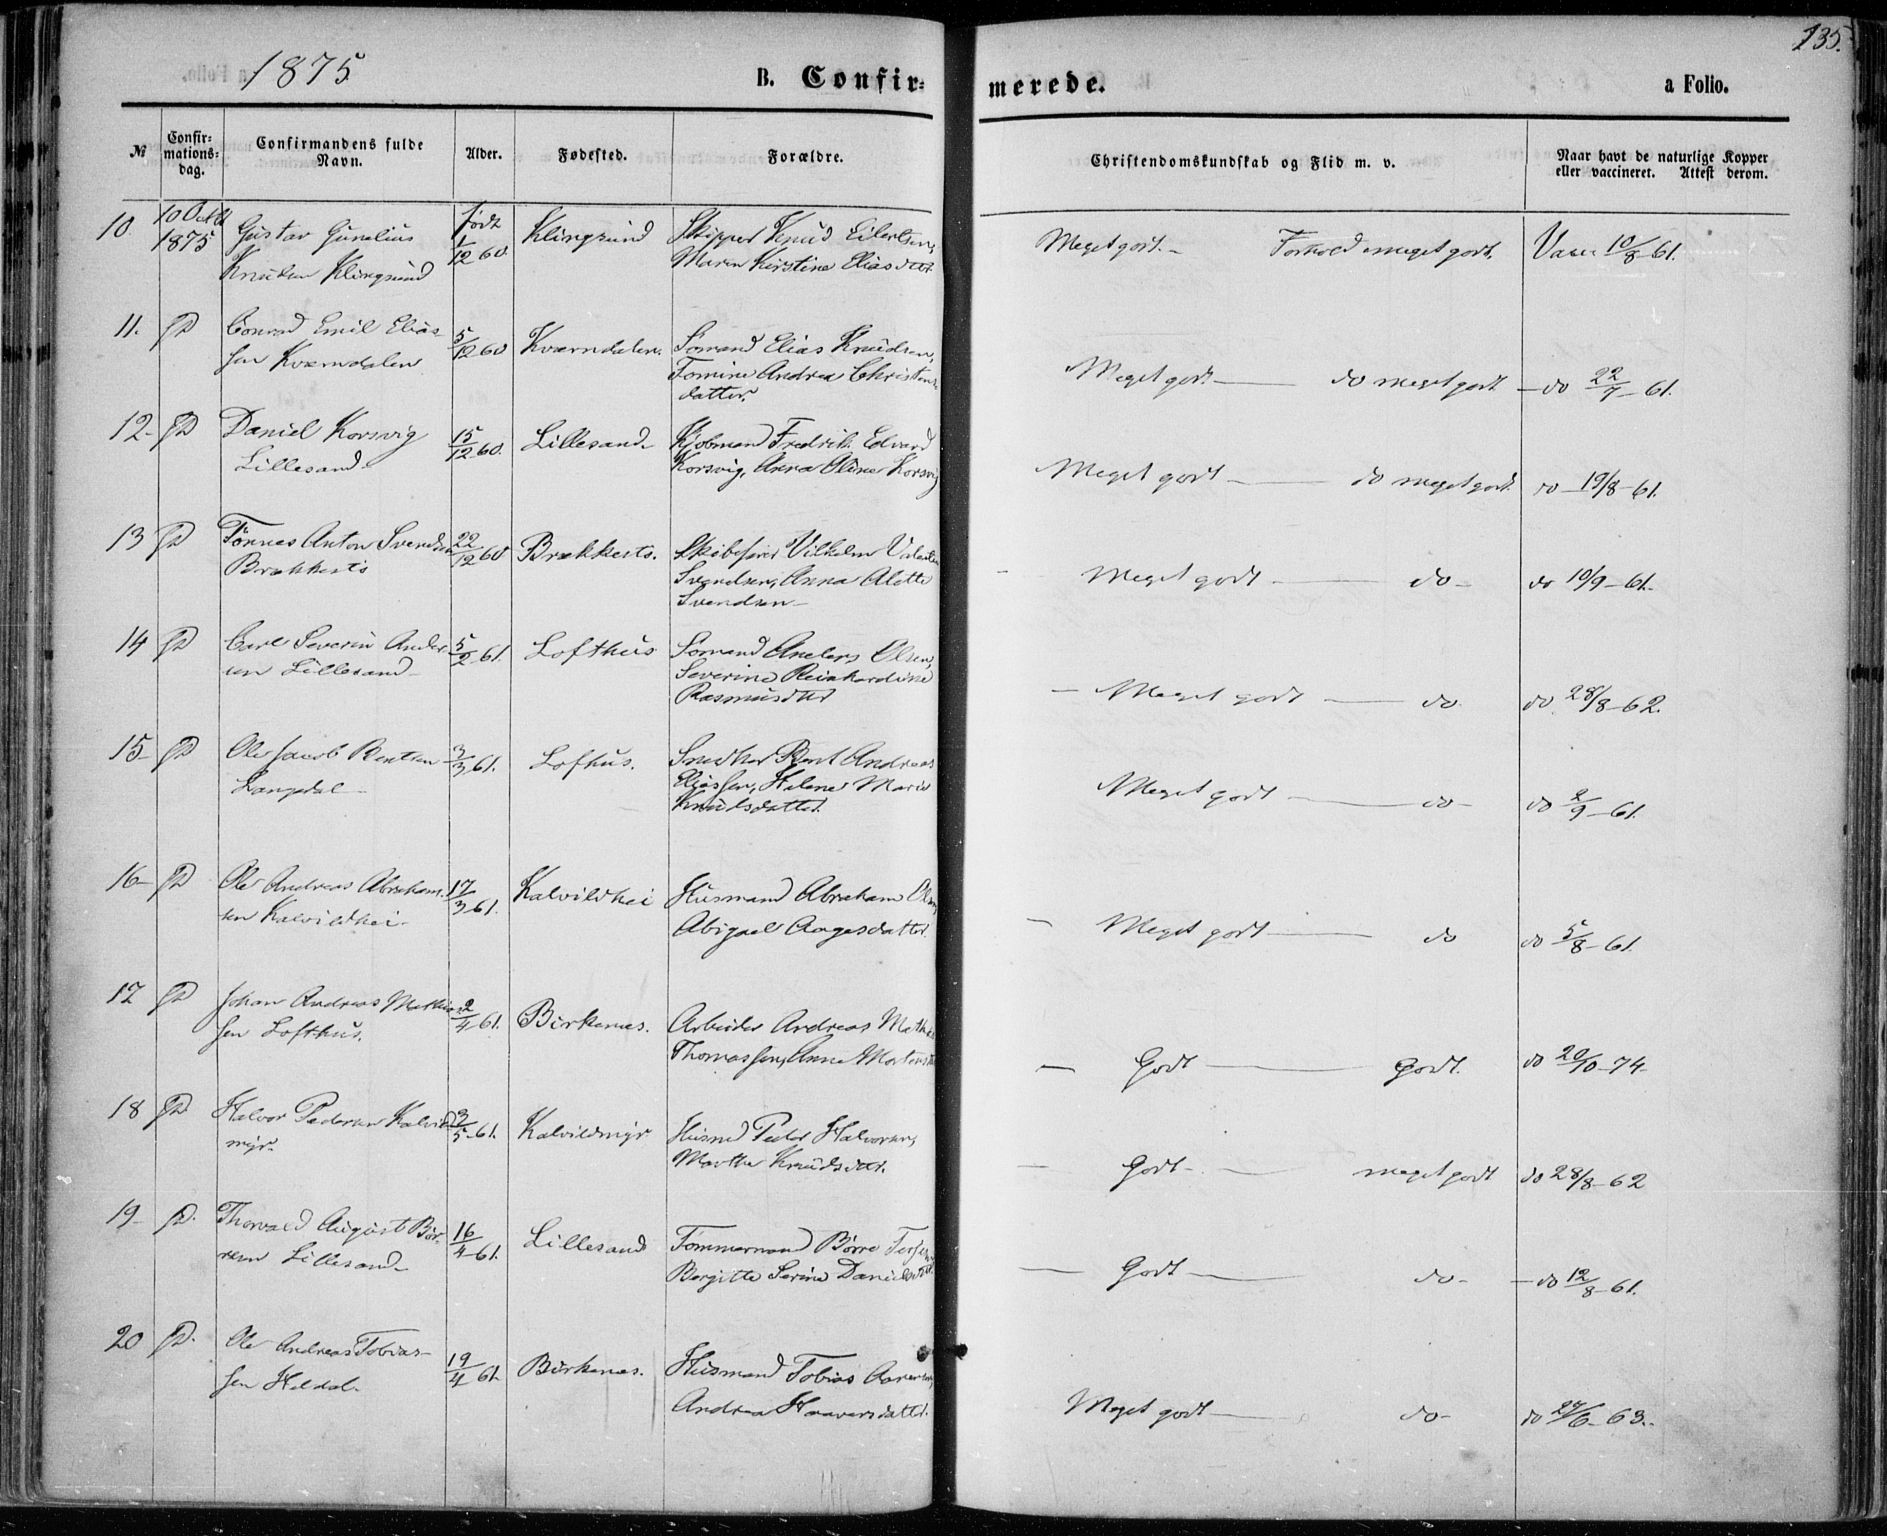 135.
1875
B. Confir-
merede.
a Folio.
№
Confir-
mations-
dag.
Confirmandens fulde
Navn.
Alder.
Fødested.
Forældre.
Christendomskundskab og Flid m. v.
Naar havt de naturlige Kopper
eller vaccineret. Attest derom.
10 10 Octb 1875 Gustav Gunelius født 1/12 60. Klingsund Skipper Knud Eilertsen, Meget godt. - Forhold meget godt. Vacc 10/8 61.
Knudsen Klingsund Maren Kirstine Eliasdtr.
11. D Conrad Emil Elias- 5/12 60 Kværndalen. Sømand Elias Knudsen, Meget godt — do meget godt — do 22/7 61.
sen Kværndalen Tomine Andrea Christens-
datter.
12- D Daniel Korsvig 15/12 60. Lillesand Kjøbmand Fredrik Edvard Meget godt — do meget godt. do - 19/8 - 61.
Lillesand Korsvig, Anna Oline Korsvig
13 D Tønnes Anton Svendsen 22/12 60 Brækkestø. Skibsfører Vilhelm Meget godt — do - do 10/9 - 61.
Brækkestø Svendsen, Anna Alette
Svendsen
14 D Carl Severin Ander- 5/2 61. Lofthus Sømand Anders Olsen, - Meget godt — do do 28/8 - 62.
sen Lillesand Severine Reinhardine
Rasmusdtr
15- D Ole Jacob Bentsen 3/3 61. Lofhus. Snedker Bent Andreas Meget godt — do - do 2/9 - 61.
Langedal Eliassen, Helene Marie
Knudsdatter.
16- D Ole Andreas Abraham- 17/3 61. Kalvildhei Husmand Abraham Olsen - Meget godt — do do 5/8 - 61.
sen Kalvildhei. Abigael Aagesdatter.
17 D Johan Andreas Mathias- 2/4 61. Birkenes. Arbeider Andreas Mathias - Godt — Godt. do 20/10 - 74.
sen Lofthus. Thomassen, Anne Mortensdtr
18 D Halvor Pedersen Kalvild- 3/5 61. Kalvildmyr Husmd Peder Halvorsen, - Godt - — meget godt do 28/8 - 62
myr. Marthe Knudsdtr.
19- D. Thorvald August Bør- 16/4 61. Lillesand Tømmermand Børre - Godt — do - - do 12/8 61.
resen Lillesand Bergitte Serine Danielsdtr.
20 D. Ole Andreas Tobias- 19/4 61. Birkenes. Husmand Tobias Meget godt — do - do 24/6 - 63.
sen Heldal. Andrea Haaversdatter.